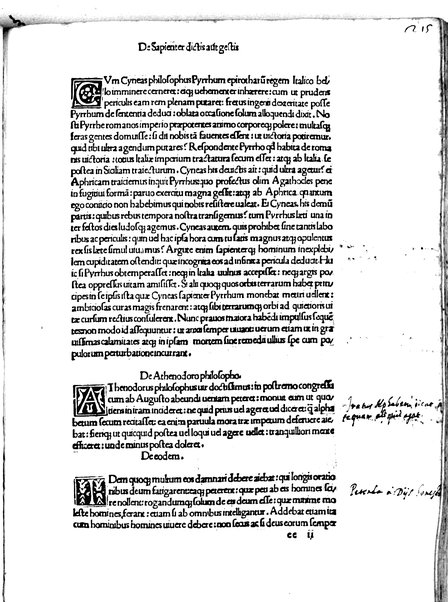 215
De Sapienter dictis aut gestis
CUm Cyneas philosophus Pyrrhum epirotharũ regem Italico bel/
lo imminere cerneret: atq; uehementer inherere: cum ut prudens
periculis eam rem plenam putaret: fretus ingenii dexteritate posse
Pyrrhum de sententia deduci: oblata occasione solum alloquendi dixit. No
sti Pyrrhe romanos imperio præpotentes animo corporeq; polere: multasq;
feras gentes domuisse: si dii nobis tã fauentes essent: ut uictoria potiremur:
quid tibi ultra agendum putares? Respondente Pyrrho q̃d habita de roma
nis uictoria: totius Italiæ imperium tractatura secum esset: atq; ab Italia se
postea in Siciliam traiecturum. Cyneas his deuictis ait: quid ultra agetur? ei
Aphricam traiciemus inquit Pyrrhus: quo profectus olim Agathocles pene
in fugitiui formã: paruo exercitu magna gessit: atq; ab Aphrica quantum
ego coniicio non habebimus qui nobis resistere ualeat. Et Cyneas. his demũ
partis: quibus rebus tempora nostra transigemus? tum Pyrrhus leti una in
ter festos dies ludosq; agemus. Cyneas autem. quis prohibet sine tantis labo
ribus ac periculis: quin uel hac ipsa hora cum tu satis magnus atq; opulentus
rex sis lete simul uiuamus? Argute enim sapienterq; hominum inexplebi/
lem cupiditatem ostendit: quæ incognita eos ad infinita pericula deducit. Hu
ic si Pyrrhus obtemperasset: neq; in Italia uulnus accepisset: neq; argis pos
tea oppressus uitam amisisset. Si alii quoq; quos orbis terrarum habet prin/
cipes in se ipsis ista quæ Cyneas sapienter Pyrrhum monebat metiri uellent:
ambitiosas curas magis frenarent: atq; sibi terrarumq; orbi ad quietioris ui
tæ cursum rectius consulerent. Nunc prauus maiora habẽdi impulsus sequẽ
tes non modo id assequuntur: ut artius semper uiuant: uerum etiam ut in gra
uissimas calamitates atq; in ipsam mortem sine remedii ullius spe cum po/
pulorum perturbatione incurrant.
De Athenodoro philosopho.
AThenodorus philosophus uir doctissimus: in postremo congressu
cum ab Augusto abeundi ueniam peteret: monuit eum ut quo
tiens in iram incideret: ne quid prius uel ageret uel diceret: q̃ alpha
betum secum recitasset: ea enim paruula mora iræ impetum deferuere aie/
bat: fieriq; ut quicquid postea uel loqui uel agere uellet: tranquilliori mente
efficeret: unde minus postea doleret.
De eodem.
IDem quoq; multum eos damnari debere aiebat: qui longis oratio
nibus deum fatigarent eaq; peterent: quæ peti ab eis homines sci/
re nollent: rogandumq; solum de eis deum esse: quæ minime mo
leste homines ferant: etiam si ab omnibus intelligantur. Addebat etiam ita
cum hominibus homines uiuere debere: non secus ac si deus eorum semper
cc ii